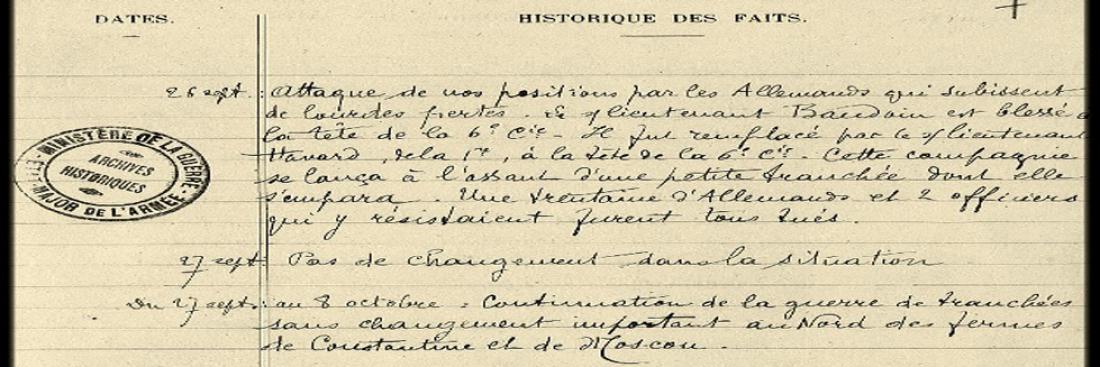 DATES.
HISTORIQUE DES FAITS.
26 sept. : Attaque de nos positions par les Allemands qui subissent
de lourdes pertes. Le s/lieutenant Baudoin est blessé à
la tête de la 6e Cie. Il fut remplacé par le s/lieutenant
Havard, de la 1re, à la tête de la 6e Cie. Cette compagnie
se lança à l'assaut d'une petite tranchée dont elle
s'empara. Une trentaine d'Allemands et 2 officiers
qui y résistaient furent tous tués.
27 sept : Pas de changement dans la situation
Du 27 sept. : au 8 octobre : Continuation de la guerre de tranchées
sans changement important au Nord des fermes
de Constantine et de Moscou.
MINISTÈRE DE LA GUERRE
ÉTAT-MAJOR DE L'ARMÉE
ARCHIVES
HISTORIQUES